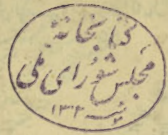 کتابخانهٔ
مجلس شورای ملی
۱۳۲۰